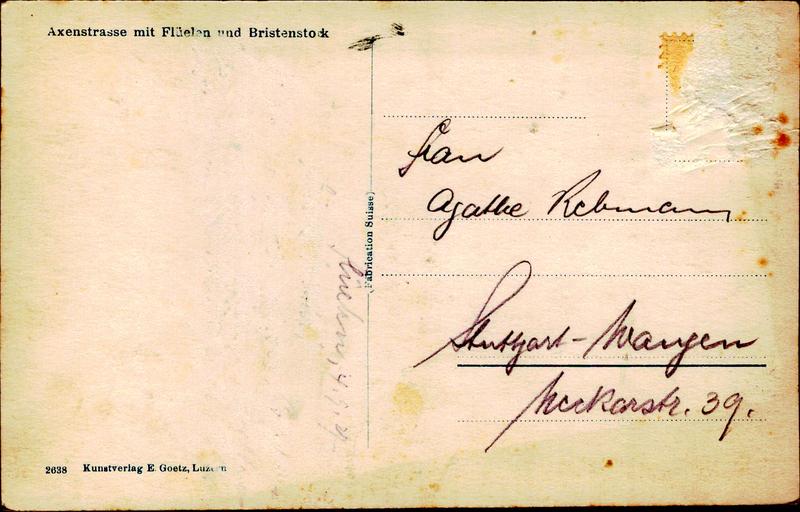 Axenstrasse mit Flüelen und Bristenstock
Frau
Agathe Rebmann
(Fabrication Suisse)
Stuttgart-Wangen
Neckarstr. 39.
2638 Kunstverlag E. Goetz, Luzern